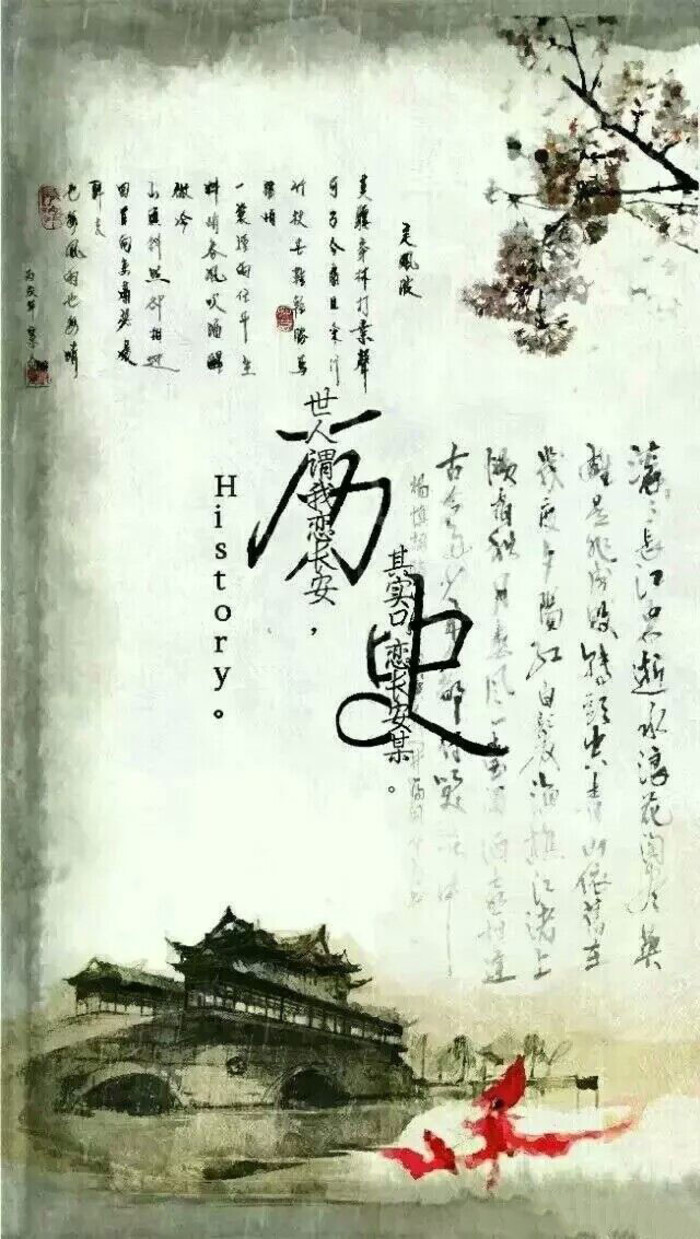 定風波
莫聽穿林打葉聲
何妨吟嘯且徐行
竹杖芒鞋輕勝馬
一蓑煙雨任平生
料峭春風吹酒醒
微冷
山頭斜照卻相迎
回首向來蕭瑟處
歸去
也無風雨也無晴
历史
History。
世人谓我恋长安，
其实只恋长安某。
滾滾長江東逝水浪花淘盡英
雄是非成敗轉頭空青山依舊在
幾度夕陽紅白髮漁樵江渚上
慣看秋月春風一壺濁酒喜相逢
古今多少事都付笑談中